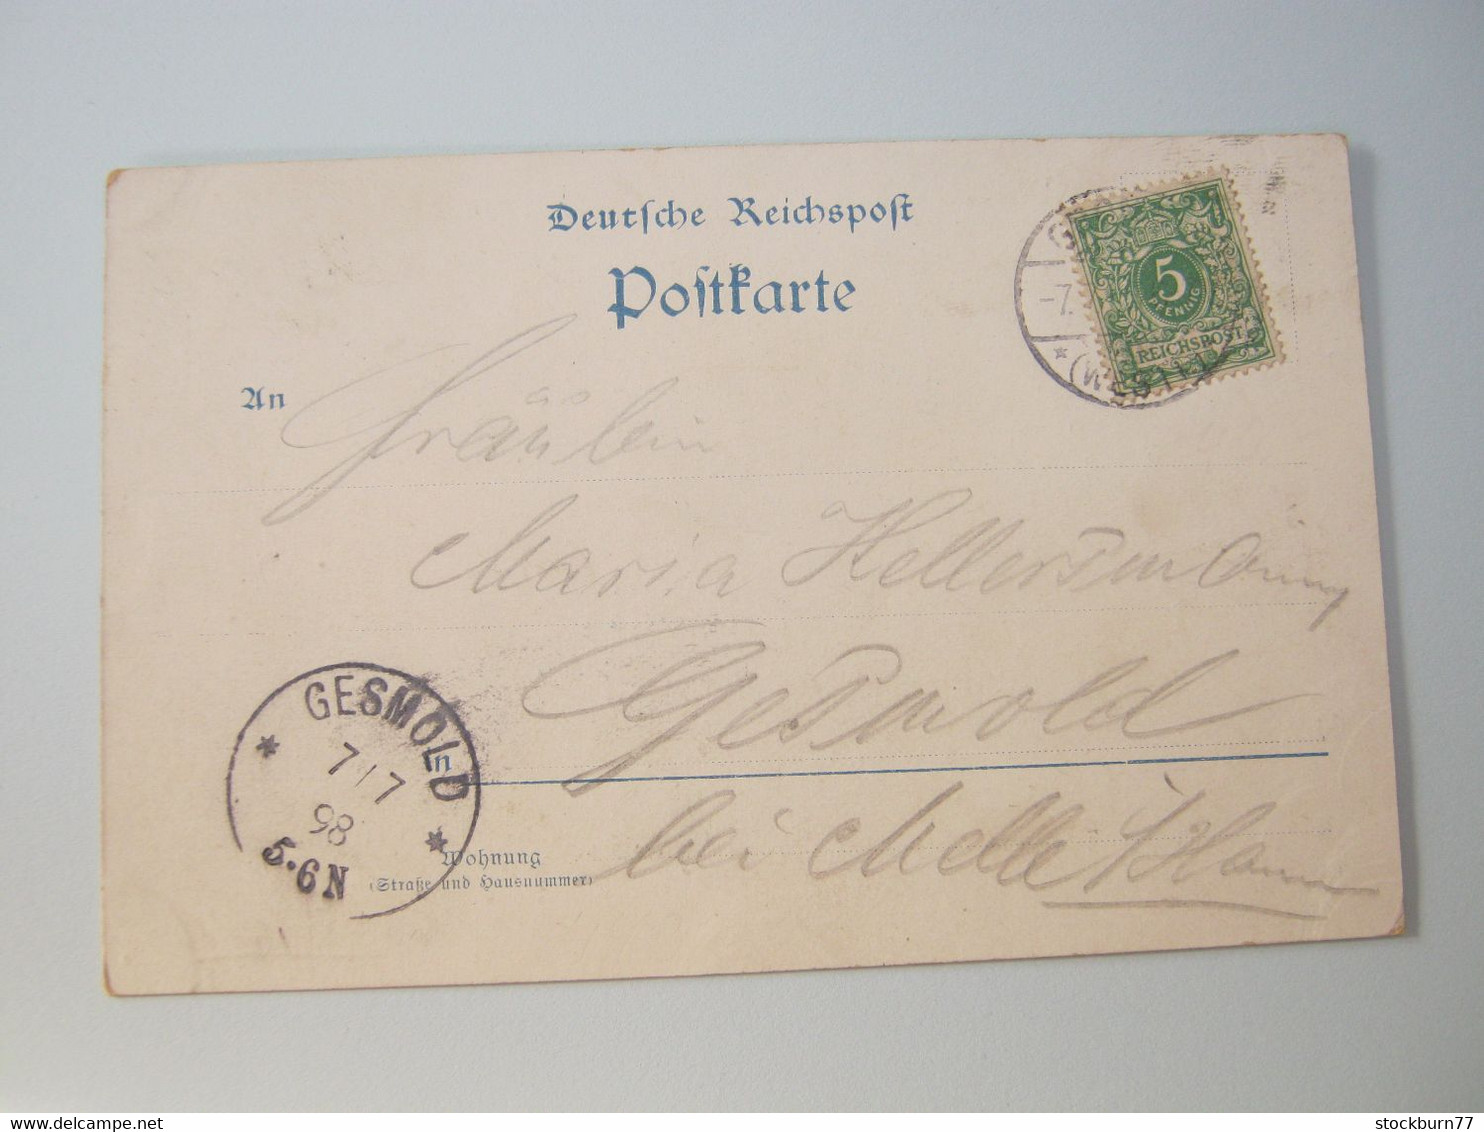 Deutsche Reichspost
Postkarte
5
PFENNIG
REICHSPOST
-7.
(WESTF.)
An
Fräulein
Maria Hellersmann
Gesmold
in
bei Melle i/Hann
GESMOLD
7/7
98
5-6N
Wohnung
(Straße und Hausnummer)
stockburn77